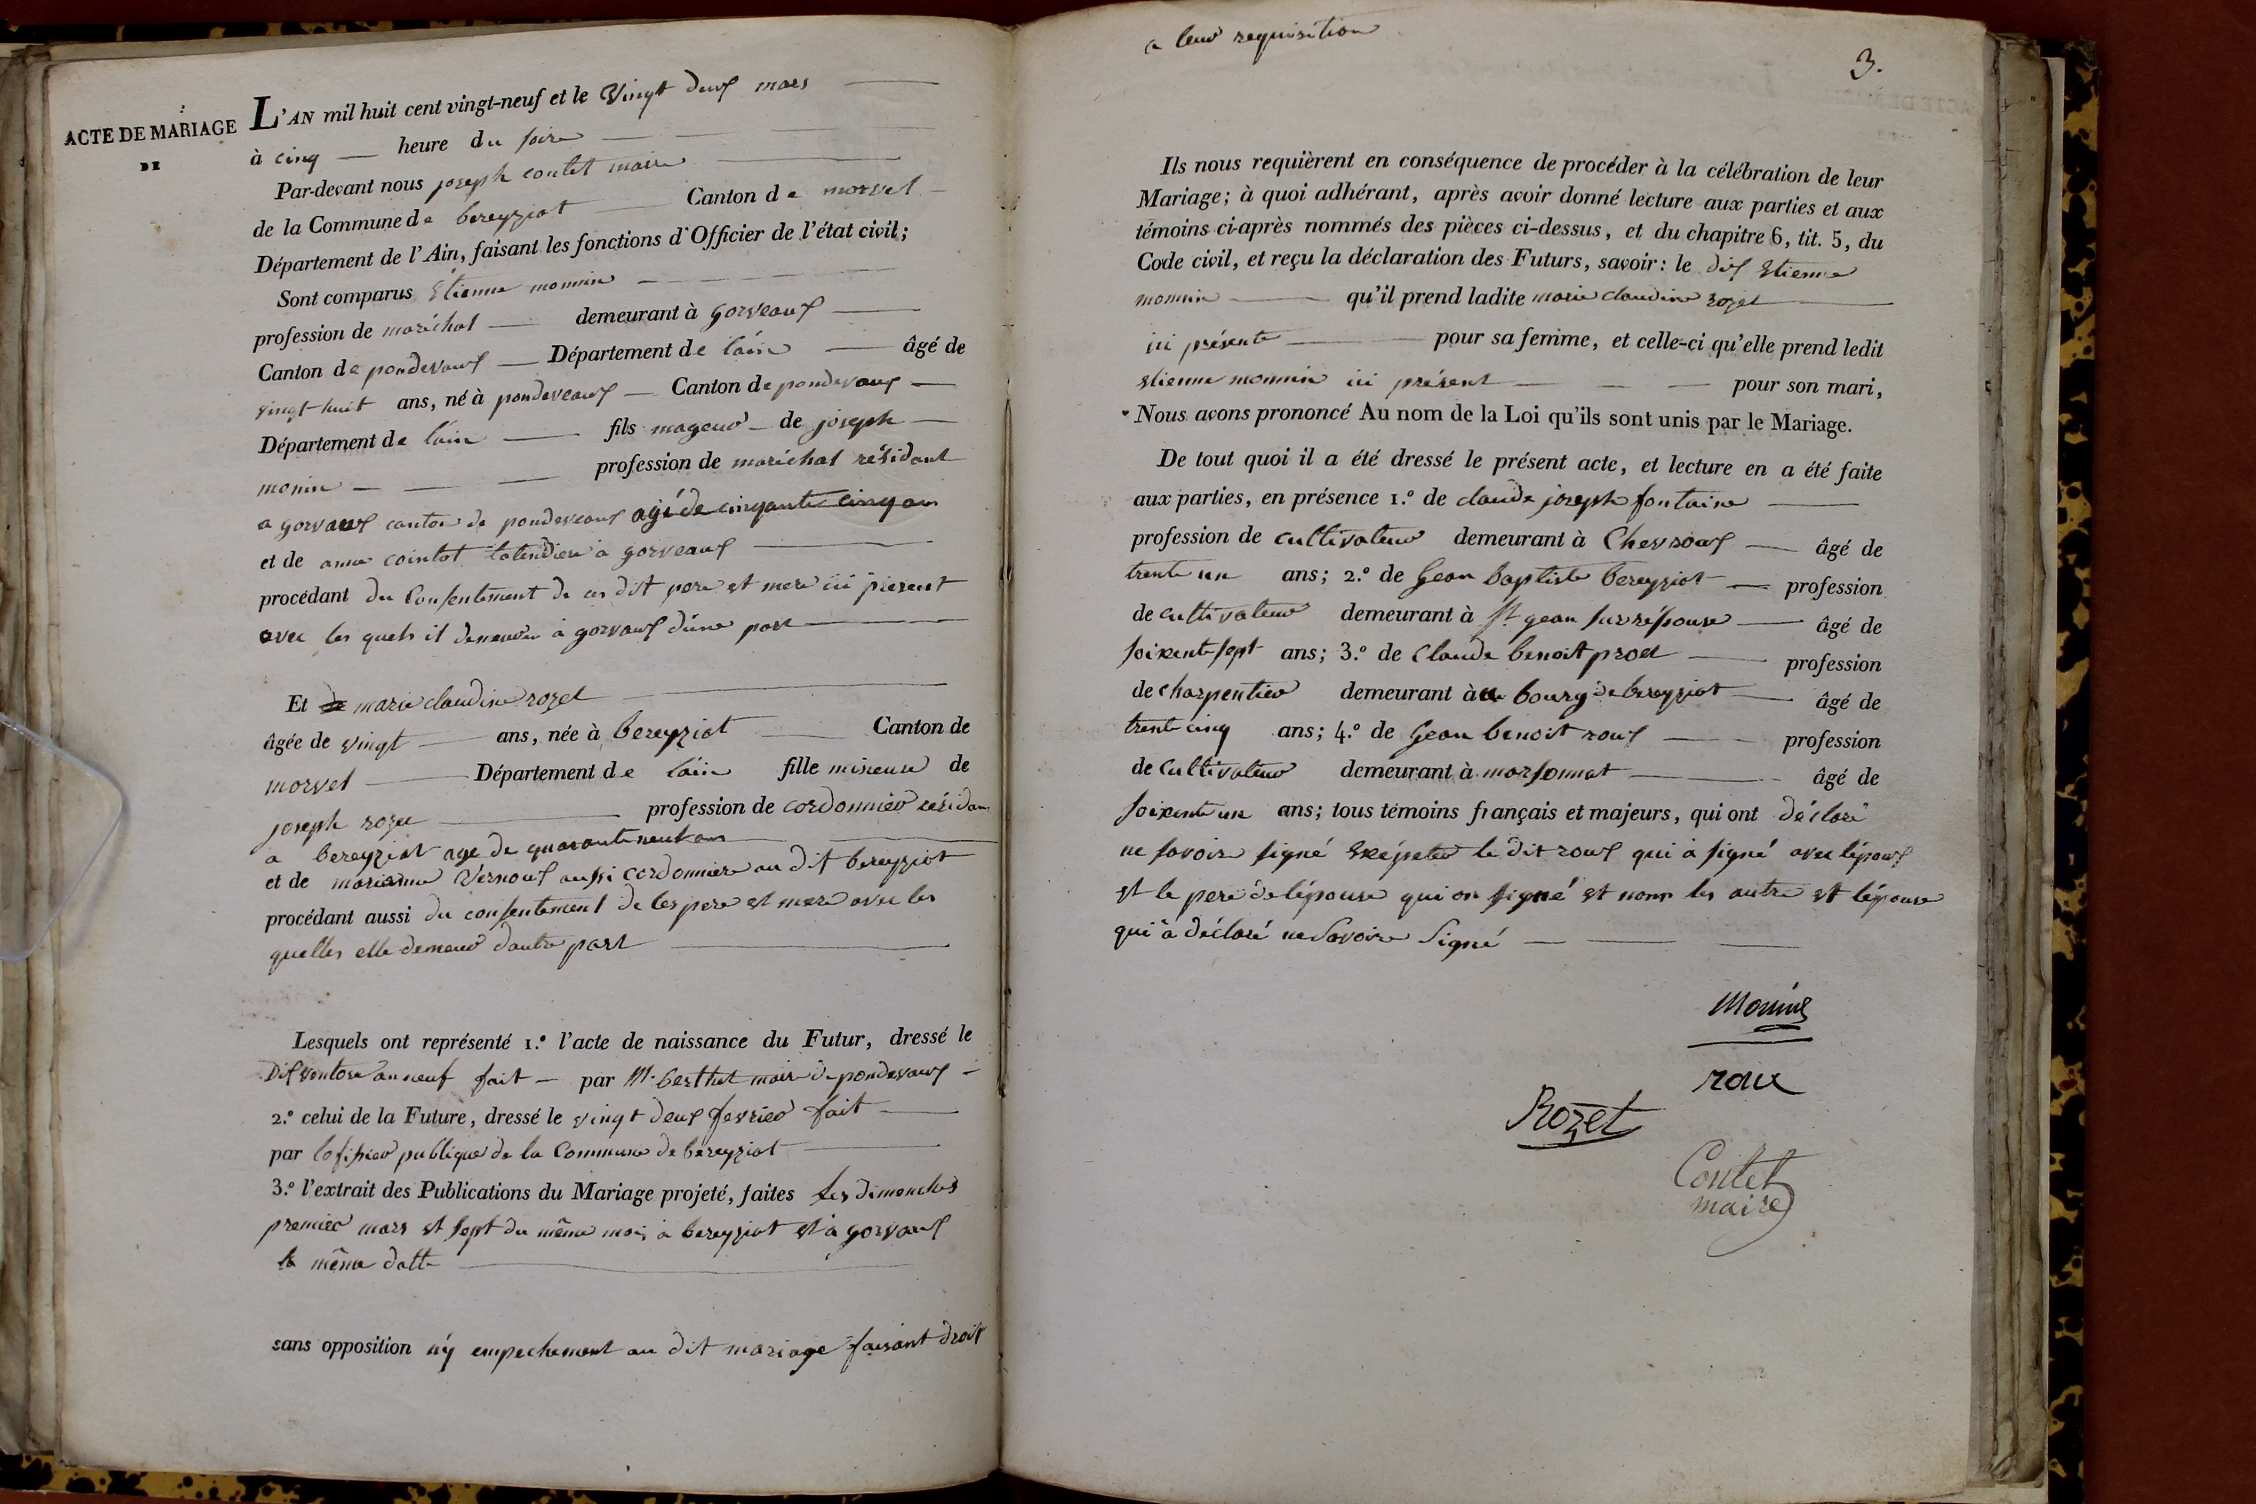 ACTE DE MARIAGE
DE
L'AN mil huit cent vingt-neuf et le vingt deux mars
à cinq heure du soire
Par-devant nous joseph contet maire
de la Commune de bereyziat Canton de morvel
Département de l'Ain, faisant les fonctions d'Officier de l'état civil;
Sont comparus Etienne monnin
profession de maréchal demeurant à gorveaux
Canton de pondevaux Département de lain âgé de
vingt-huit ans, né à pondeveaux Canton de pondevaux
Département de lain fils mageur de joseph
monin profession de maréchal résidant
a gorvaux canton de pondeveaux agé de cinquante cinq ans
et de anne cointot totendieu a gorveaux
procédant du Consentement de ces dit pere et mere ici present
avec les quels il demeure à gorvaux d'une part
Et de marie claudine rozet
âgée de vingt ans, née à bereyziat Canton de
morvel Département de lain fille mineure de
joseph rozet profession de cordonnier résidan
a bereyziat age de quarante neuf ans
et de marianne Vernoux aussi cordonniere au dit bereyziat
procédant aussi du consentement de ses pere et mere avec les
quelles elle demeure d'autre part
Lesquels ont représenté 1.º l'acte de naissance du Futur, dressé le
Dix vantose an neuf fait par M. berthet maire de pondevaux
2.º celui de la Future, dressé le vingt deux fevrier fait
par lofisier publique de la Commune de bereyziat
3.º l'extrait des Publications du Mariage projeté, faites les dimenches
premier mars et sept du même mois a bereyziat et à gorvaux
la même datte
sans opposition ny empechement au dit mariage faisant droit
a leur requisition
3.
Ils nous requièrent en conséquence de procéder à la célébration de leur
Mariage; à quoi adhérant, après avoir donné lecture aux parties et aux
témoins ci-après nommés des pièces ci-dessus, et du chapitre 6, tit. 5, du
Code civil, et reçu la déclaration des Futurs, savoir: le dit Etienne
monnin qu'il prend ladite marie claudine rozet
ici présente pour sa femme, et celle-ci qu'elle prend ledit
etienne monnin ici présent pour son mari,
Nous avons prononcé Au nom de la Loi qu'ils sont unis par le Mariage.
De tout quoi il a été dressé le présent acte, et lecture en a été faite
aux parties, en présence 1.º de claude joseph fontaine
profession de cultivateur demeurant à Chevroux âgé de
trente un ans; 2.º de Gean baptiste bereyziat profession
de cultivateur demeurant à St gean sur résouse âgé de
soixente sept ans; 3.º de Claude benoit prost profession
de charpentier demeurant à au bourg de bereyziat âgé de
trente cinq ans; 4.º de Gean benoit roux profession
de cultivateur demeurant à marsonnat âgé de
soixente un ans; tous témoins français et majeurs, qui ont déclaré
ne savoir signé Exépter le dit roux qui à signé avec lépoux
et le pere de lépouse qui on signé et nonn les autre et lépouse
qui à déclaré ne Savoire Signé
Monin
roux
Rozet
Contet
maire